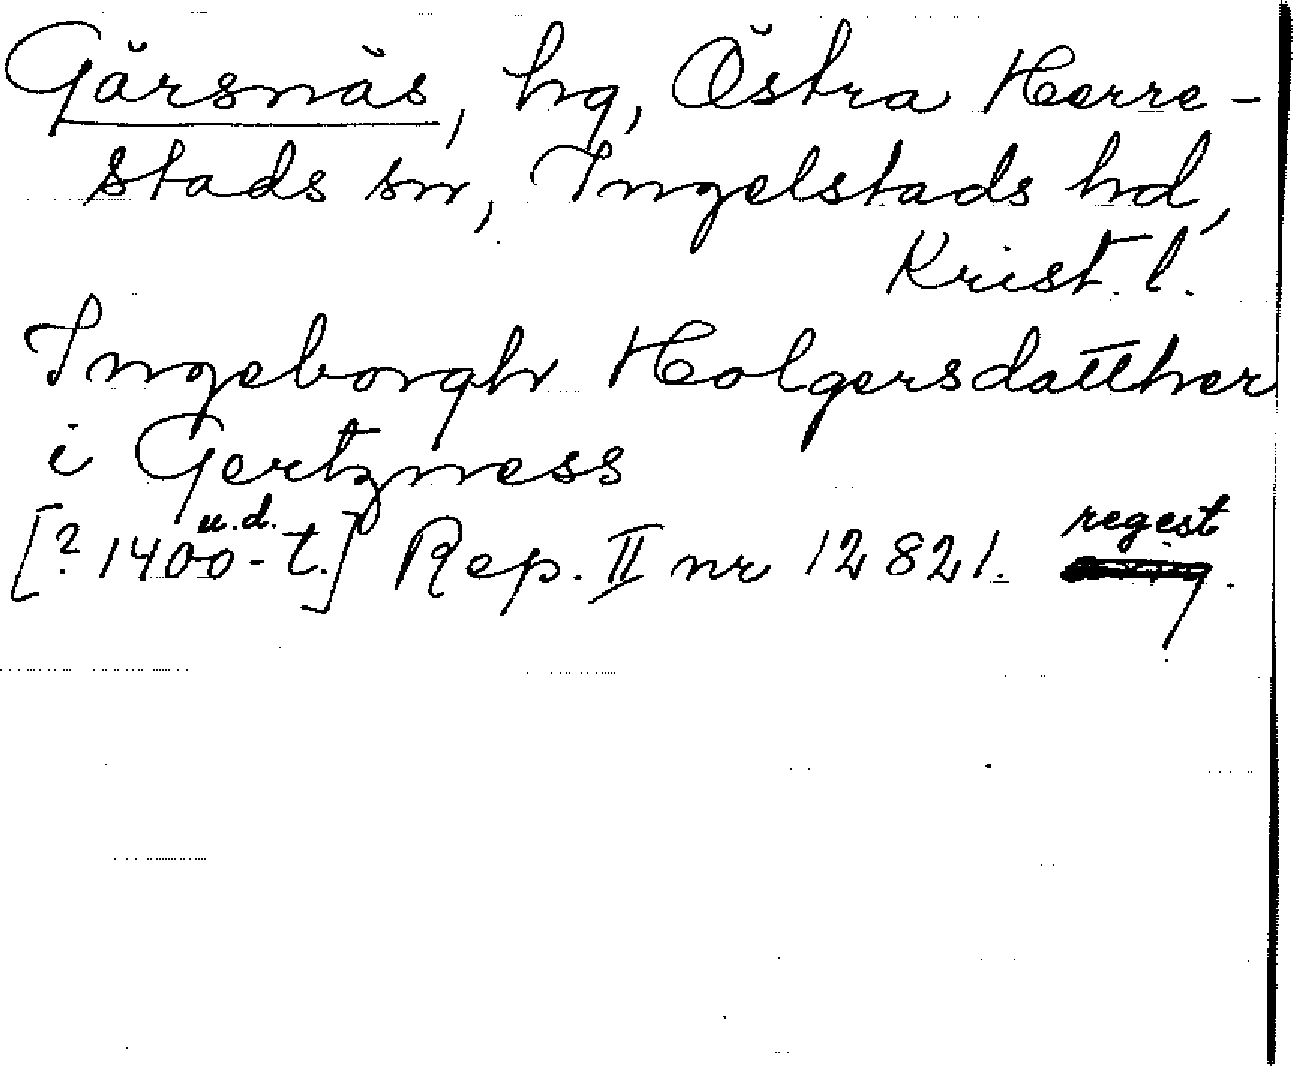 Gärsnäs, hg, Östra Herre-
stads sn, Ingelstads hd,
Krist. l.
Ingeborgh Holgersdatther
i Gertzness
[? 1400-t.] u.d. Rep. II nr 12821. regest